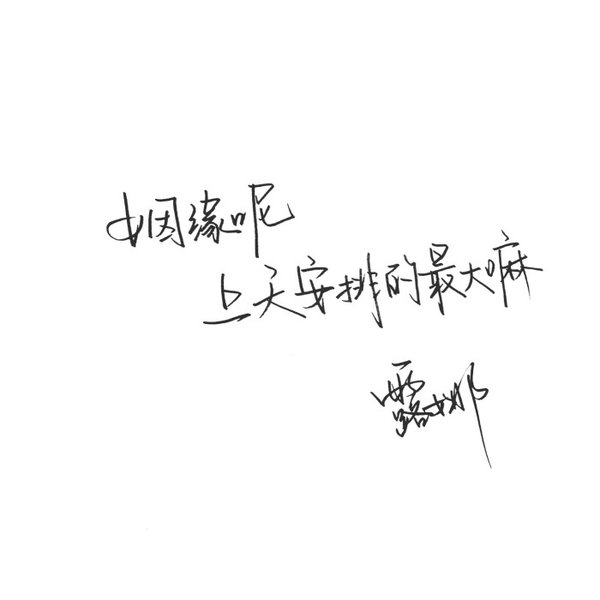 姻缘呢
上天安排的最大嘛
露娜